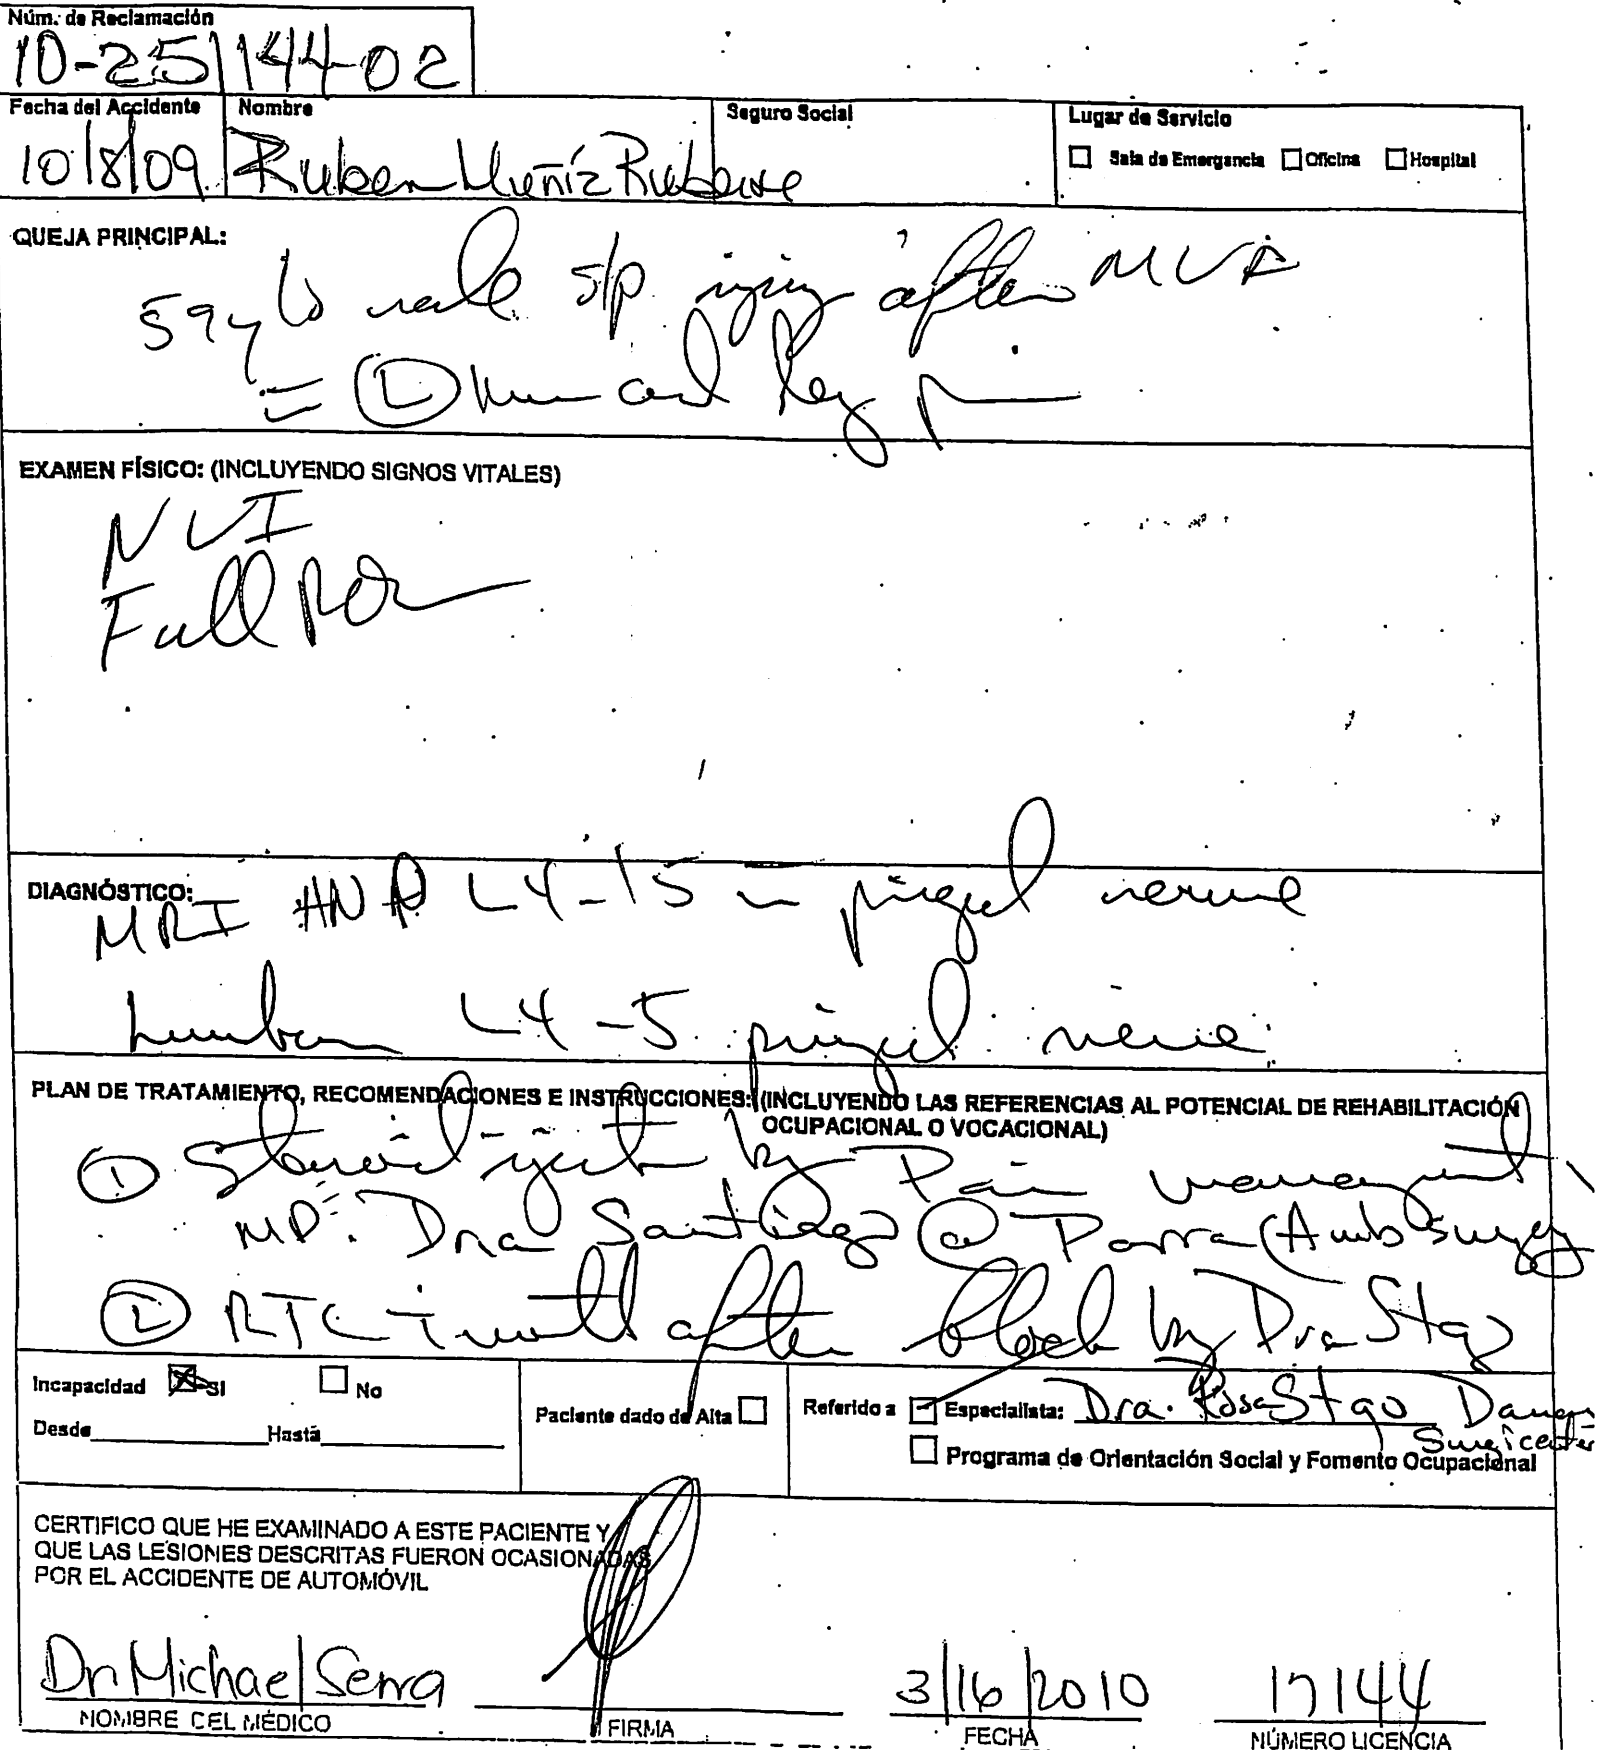 Núm. de Reclamación
10-25144-02
Fecha del Accidente Nombre Seguro Social Lugar de Servicio
10/8/09 Ruben Muñíz
Sala de Emergencia Oficina Hospital
QUEJA PRINCIPAL:
59 y/o male s/p injury after MVA
(L) and leg
EXAMEN FÍSICO: (INCLUYENDO SIGNOS VITALES)
NVI
Full ROM
DIAGNÓSTICO:
MRI HNP L4-L5 pinged nerve
Lumbar L4-5 pinged nerve
PLAN DE TRATAMIENTO, RECOMENDACIONES E INSTRUCCIONES: (INCLUYENDO LAS REFERENCIAS AL POTENCIAL DE REHABILITACIÓN
OCUPACIONAL O VOCACIONAL)
① Steroid by Pain management
MD: Dra Santiago @ (Amb surgery
② RTC month after block by Dra Stgo
Incapacidad SI No
Desde Hasta
Paciente dado de Alta
Referido a Especialista: Dra. Rosa Stgo
Surgicenter
Programa de Orientación Social y Fomento Ocupacional
CERTIFICO QUE HE EXAMINADO A ESTE PACIENTE Y
QUE LAS LESIONES DESCRITAS FUERON OCASIONADAS
POR EL ACCIDENTE DE AUTOMÓVIL
Dr Michael Serra 3/16/2010 17144
NOMBRE DEL MÉDICO FIRMA FECHA NÚMERO LICENCIA